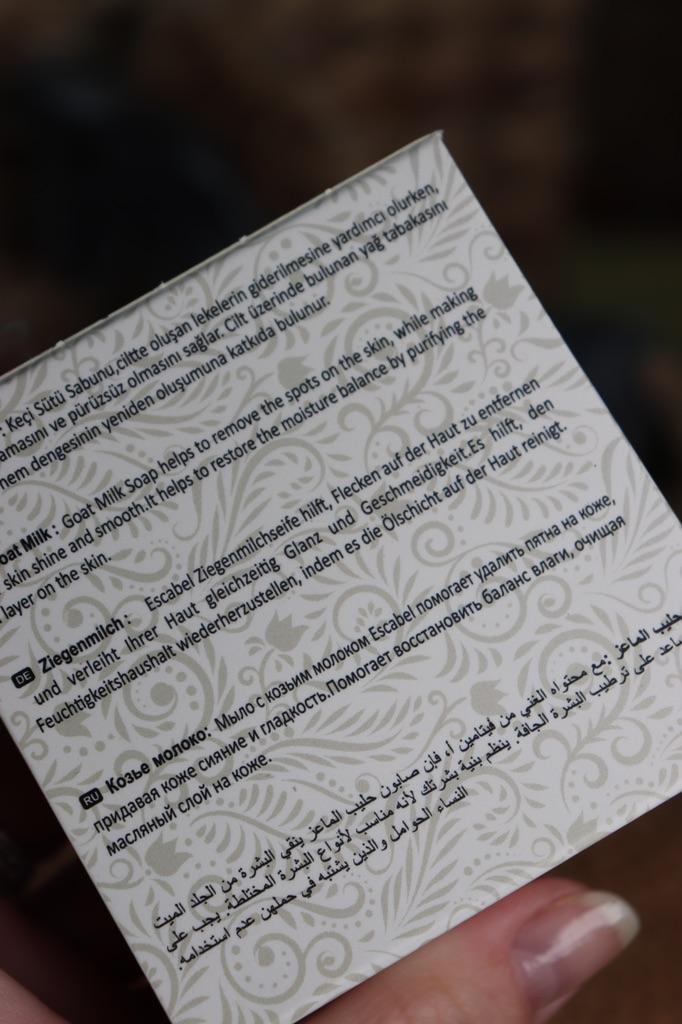 : Keçi Sütü Sabunu,ciltte oluşan lekelerin giderilmesine yardımcı olurken,
amasını ve pürüzsüz olmasını sağlar. Cilt üzerinde bulunan yağ tabakasını
nem dengesinin yeniden oluşumuna katkıda bulunur.
oat Milk : Goat Milk Soap helps to remove the spots on the skin, while making
skin shine and smooth.It helps to restore the moisture balance by purifying the
layer on the skin.
DE Ziegenmilch : Escabel Ziegenmilchseife hilft, Flecken auf der Haut zu entfernen
und verleiht Ihrer Haut gleichzeitig Glanz und Geschmeidigkeit.Es hilft, den
Feuchtigkeitshaushalt wiederherzustellen, indem es die Ölschicht auf der Haut reinigt.
RU Козье молоко: Мыло с козьим молоком Escabel помогает удалить пятна на коже,
придавая коже сияние и гладкость.Помогает восстановить баланс влаги, очищая
масляный слой на коже.
حليب الماعز :مع محتواه الغني من فيتامين أ، فإن صابون حليب الماعز ينقي البشرة من الجلد الميت
ساعد على ترطيب البشرة الجافة. ينظم بنية بشرتك لأنه مناسب لأنواع البشرة المختلطة. يجب على
النساء الحوامل والذين يشتبه في حملهن عدم استخدامه.